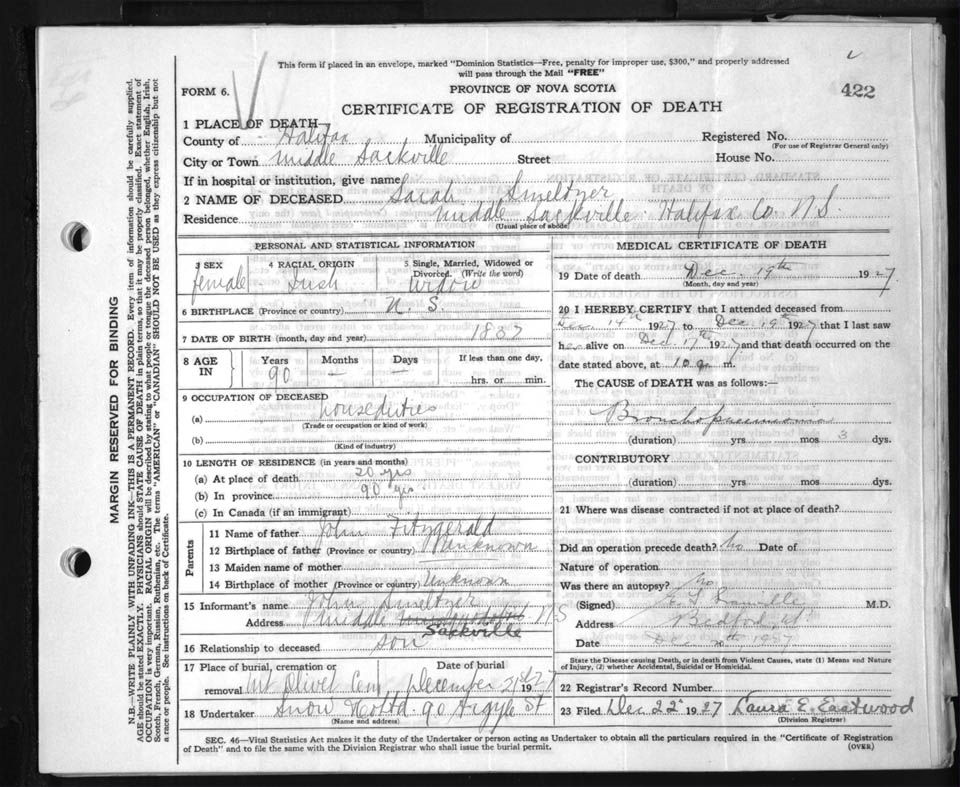 This form if placed in an envelope, marked "Dominion Statistics—Free, penalty for improper use, $300," and properly addressed
will pass through the Mail "FREE"
FORM 6.
PROVINCE OF NOVA SCOTIA
422
CERTIFICATE OF REGISTRATION OF DEATH
1 PLACE OF DEATH—
County of Halifax Municipality of Registered No.
(For use of Registrar General only)
City or Town Middle Sackville Street House No.
If in hospital or institution, give name
2 NAME OF DECEASED Sarah Smeltzer
Residence Middle Sackville Halifax Co N S
(Usual place of abode)
PERSONAL AND STATISTICAL INFORMATION
3 SEX 4 RACIAL ORIGIN 5 Single, Married, Widowed or Divorced. (Write the word)
female Irish Widow
6 BIRTHPLACE (Province or country) N. S.
7 DATE OF BIRTH (month, day and year) 1837
8 AGE IN Years Months Days If less than one day,
90 — — hrs. or min.
9 OCCUPATION OF DECEASED
(a) house duties
(Trade or occupation or kind of work)
(b)
(Kind of industry)
10 LENGTH OF RESIDENCE (in years and months)
(a) At place of death 20 yrs
(b) In province 90 yrs
(c) In Canada (if an immigrant)
Parents
11 Name of father John Fitzgerald
12 Birthplace of father (Province or country) Unknown
13 Maiden name of mother
14 Birthplace of mother (Province or country) Unknown
15 Informant's name John Smeltzer
Address Middle N S
Sackville
16 Relationship to deceased son
17 Place of burial, cremation or removal Date of burial
Mt Olivet Cem December 21st 1927
18 Undertaker Snow & Co Ltd. 90 Argyle St
(Name and address)
MEDICAL CERTIFICATE OF DEATH
19 Date of death Dec. 19th 1927
(Month, day and year)
20 I HEREBY CERTIFY that I attended deceased from
Dec. 14th 1927 to Dec. 19th 1927 that I last saw
her alive on Dec 17th 1927 and that death occurred on the
date stated above, at 10 a m.
The CAUSE of DEATH was as follows:—
Broncho pneumonia
(duration) yrs mos 3 dys.
CONTRIBUTORY
(duration) yrs. mos. dys.
21 Where was disease contracted if not at place of death?
Did an operation precede death? No Date of
Nature of operation
Was there an autopsy? No
(Signed) M.D.
Address Bedford, N.S.
Date Dec. 20th 1927
State the Disease causing Death, or in death from Violent Causes, state (1) Means and Nature
of Injury, (2) whether Accidental, Suicidal or Homicidal.
22 Registrar's Record Number
23 Filed Dec 22 1927 Laura E. Eastwood
(Division Registrar)
SEC. 46—Vital Statistics Act makes it the duty of the Undertaker or person acting as Undertaker to obtain all the particulars required in the "Certificate of Registration
of Death" and to file the same with the Division Registrar who shall issue the burial permit.
(OVER)
MARGIN RESERVED FOR BINDING
N.B.—WRITE PLAINLY, WITH UNFADING INK—THIS IS A PERMANENT RECORD. Every item of information should be carefully supplied.
AGE should be stated EXACTLY. PHYSICIANS should STATE CAUSE OF DEATH in plain terms, so that it may be properly classified. Exact statement of
OCCUPATION is very important. RACIAL ORIGIN will be described by stating to what people or tongue the deceased person belonged, whether English, Irish,
Scotch, French, German, Russian, Ruthenian, etc. The terms "AMERICAN" or "CANADIAN" SHOULD NOT BE USED as they express citizenship but not
a race or people. See instructions on back of Certificate.